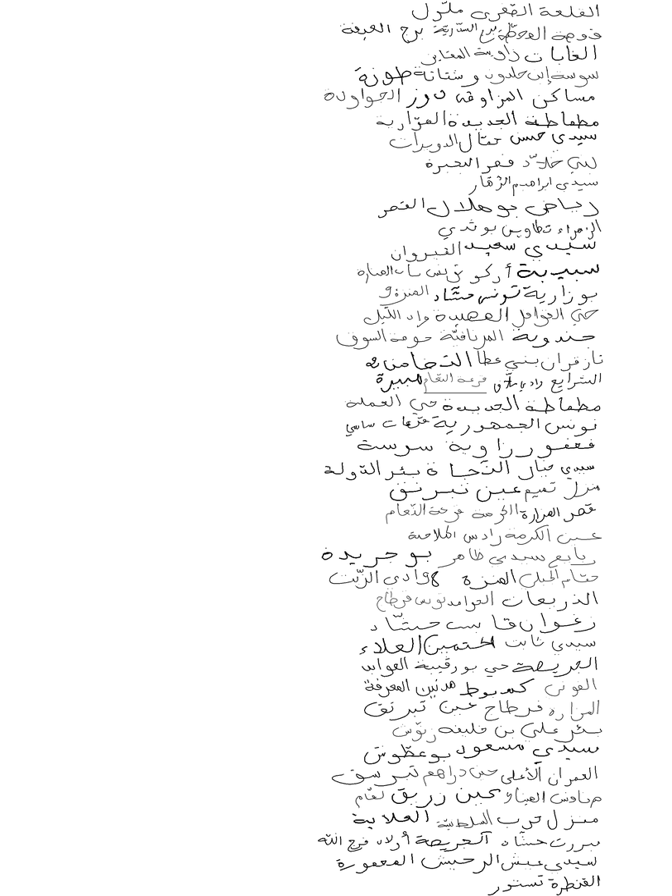 القلعة الصغرى ملّول
فوجة المحطة برج السدرية برج الحيفة
الغابات زاوية المغايز
سوسة ابن خلدون وشتاتة طونة
مساكن المزاوقة دوز الجواودة
مطماطة الجديدة المزارية
سيدي حسن حمّال الدويرات
بني خلاّد قصر البحيرة
سيدي ابراهيم الزهار
رياض بوهلال القصر
الزهراء تطاوين بوثدي
سيدي سعيد القيروان
سبيبة أركو تونس باب المنارة
بوزارية تونس حشّاد المنزه 9
حي القوافل المهيدة واد الليل
جندوبة المرناقيّة حومة السوق
تازغران بني عطا التضامن 2
الشرايع وادي مليان قرعة النعام منبيرة
مطماطة الجديدة حي العملة
تونس الجمهورية ساسي
قعفور زاوية سوسة
سيدي خيار النجاة بئر الدولة
منزل تميم عين تبرنق
قصر المزارة الحرمة فرحة النعام
عين الكرمة رادس الملاحة
ربايع سيدي ظاهر بوجريدة
حمّام الجبلي المنزه 8 وادي الزيت
الذريعات العوامد تونس قرطاج
زغوان قابس حشّاد
سيدي ثابت العلاء
الجريصة حي بورقيبة العوابد
القوني كمبوط مدنين المعرفة
المزاره قرطاج عين تبرنق
بئر علي بن خليفة زيوش
سيدي مسعود بوعطّوش
العمران الأعلى حي دراهم تبرسق
صنادس عين زريق لقّام
منزل حرب السلطنية العلاية
بنزرت حشّاد الجريصة أولاد فرج الله
سيدي عيش الرحيش المعمورة
القنطرة تستور